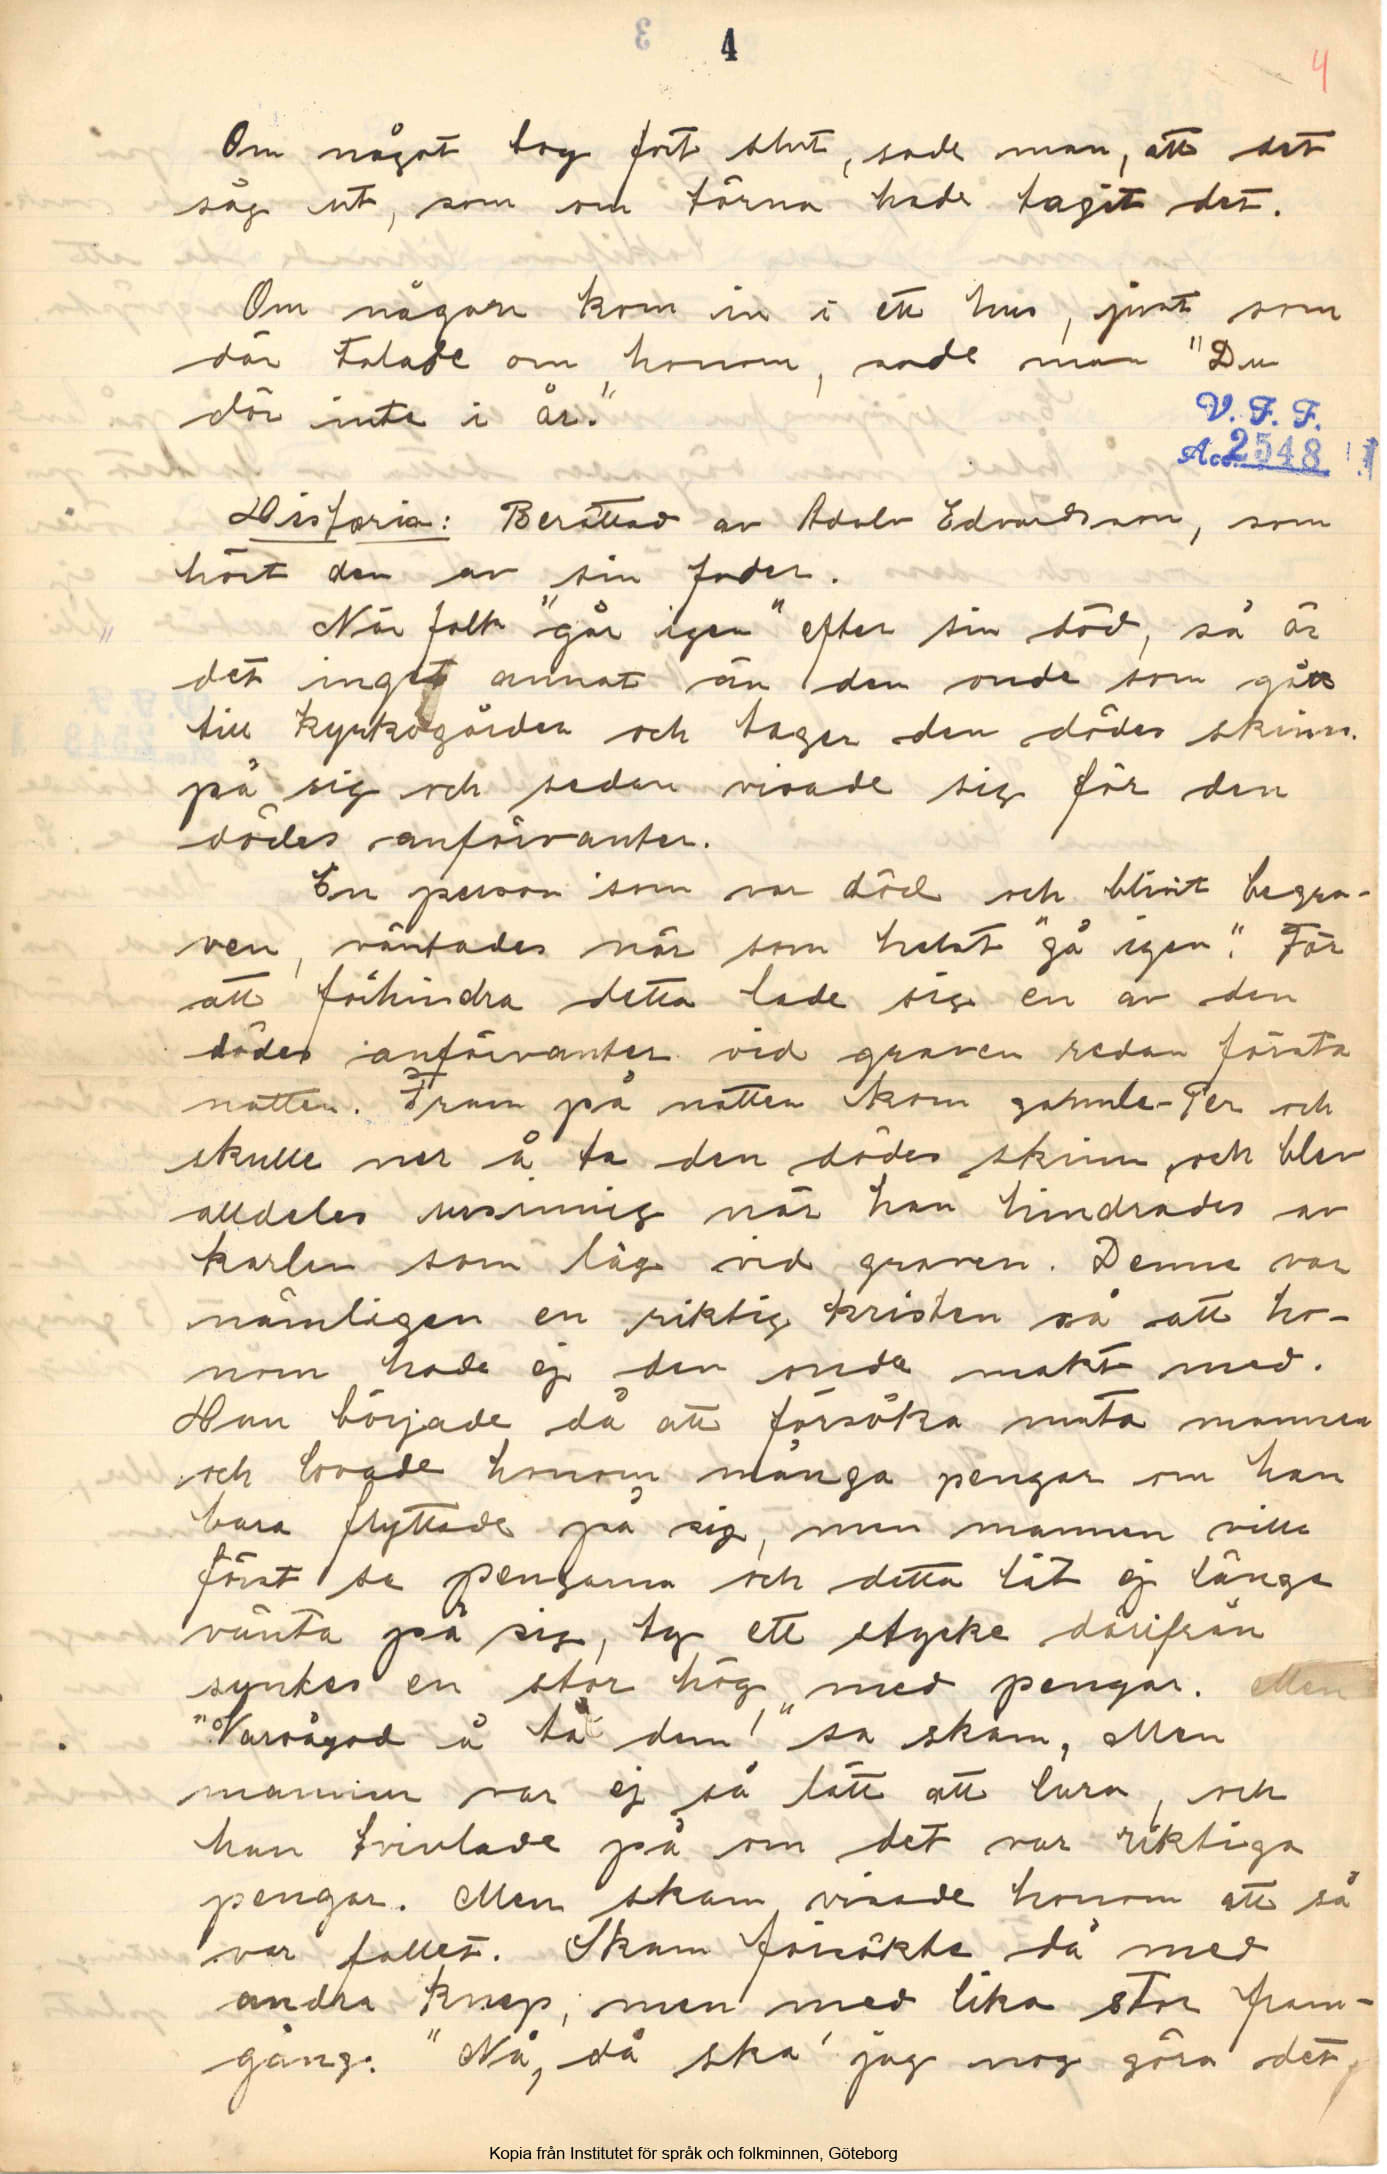 4
4
Om något tog fort slut, sade man, att det
såg ut, som om törna hade tagit det.
Om någon kom in i ett hus, just som
där talade om honom, sade man "Du
dör inte i år."
V. F. F.
Acc. 2548
Historia: Berättad av Adolv Edvardsson, som
hört den av sin fader.
När folk "går igen" efter sin död, så är
det inget annat än den onde som gått
till kyrkogården och tager den dödes skinn
på sig och sedan visade sig för den
dödes anförvanter.
En person som var död och blivit begra-
ven, väntades när som helst "gå igen". För
att förhindra detta lade sig en av den
dödes anförvanter vid graven redan första
natten. Fram på natten kom gamle-Per och
skulle ner å ta den dödes skinn, och blev
alldeles ursinnig när han hindrades av
karlen som låg vid graven. Denne var
nämligen en riktig kristen så att ho-
nom hade ej den onde makt med.
Han började då att försöka muta mannen
och lovade honom många pengar om han
bara flyttade på sig, men mannen ville
först se pengarna och detta lät ej länge
vänta på sig, ty ett stycke därifrån
syntes en stor hög med pengar. Men
"Varsågod å ta dem!" sa skam. Men
mannen var ej så lätt att lura, och
han tvivlade på om det var riktiga
pengar. Men skam visade honom att så
var fallet. Skam försökte då med
andra knep, men med lika stor fram-
gång. "Nå, då ska' jag nog göra det,
Kopia från Institutet för språk och folkminnen, Göteborg